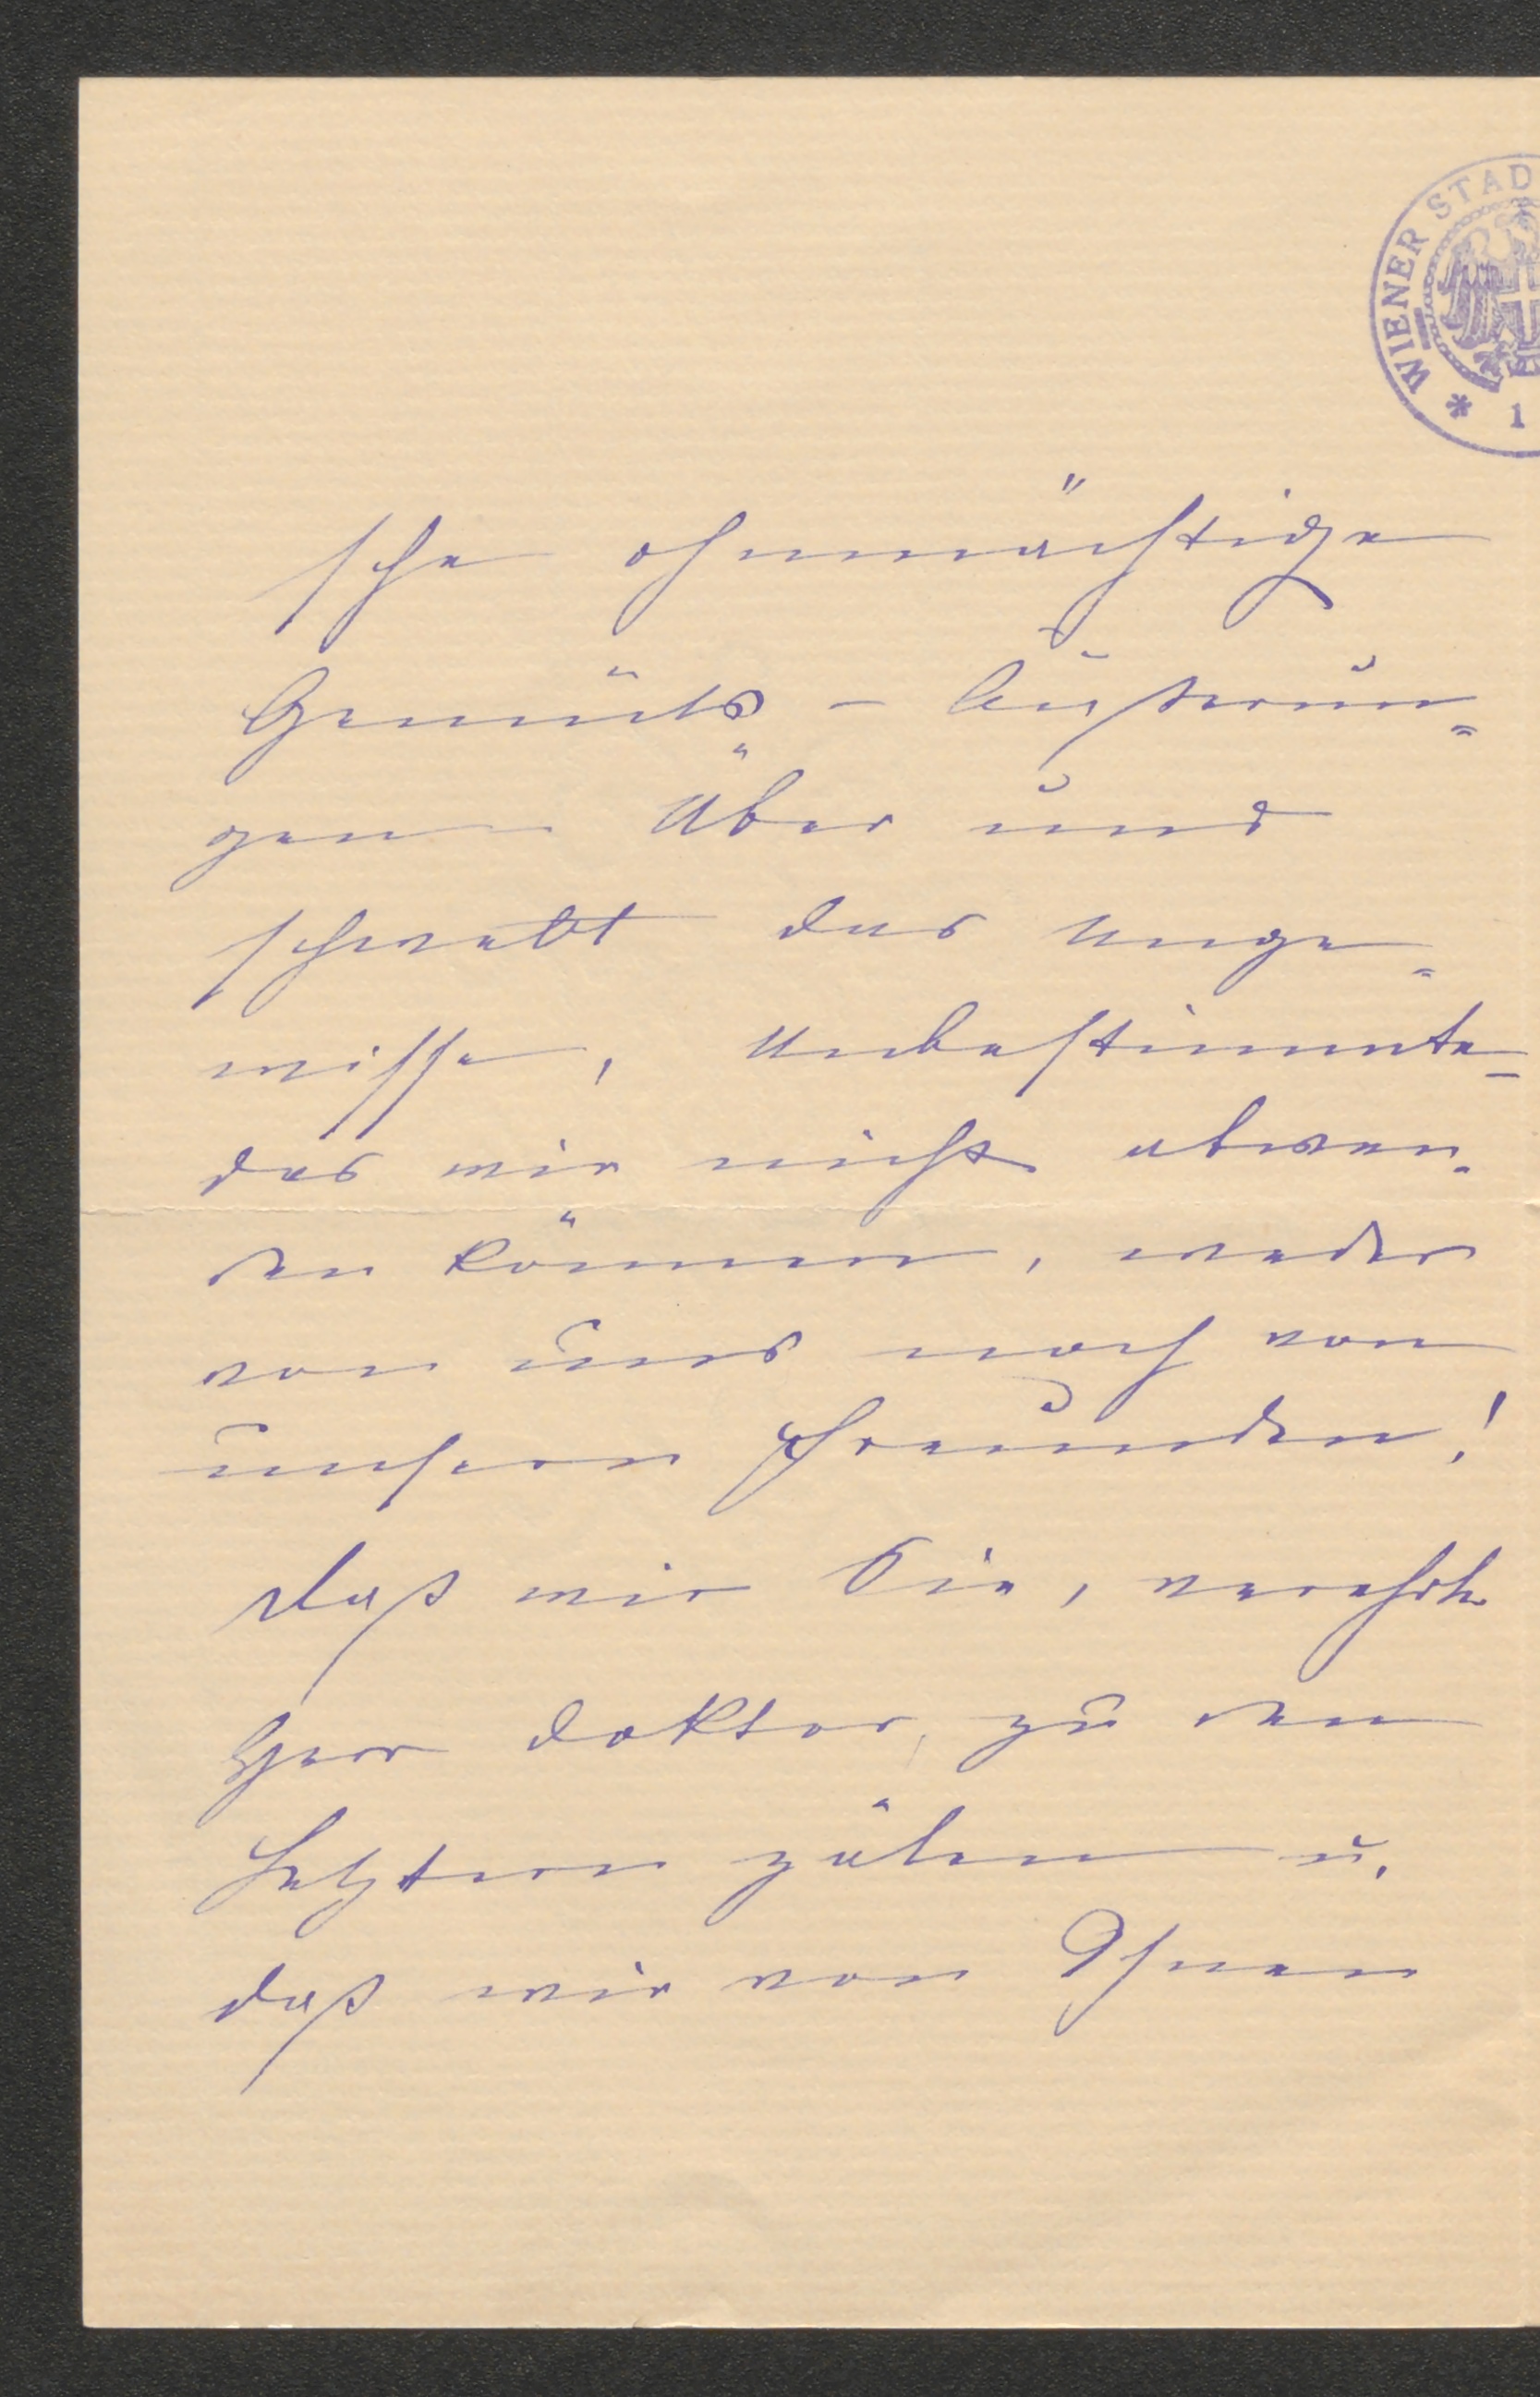 WIENER STAD
* 1
sche ohnmächtige
Gemüts - Äußerun=
gen. Über uns
schwebt das Unge=
wisse, Unbestimmte
das wir nicht abwen-
den können, weder
von uns noch von
unsern Freunden!
Daß wir Sie, verehrter
Herr Doktor, zu den
Letztern zälen u.
daß wir von Ihnen